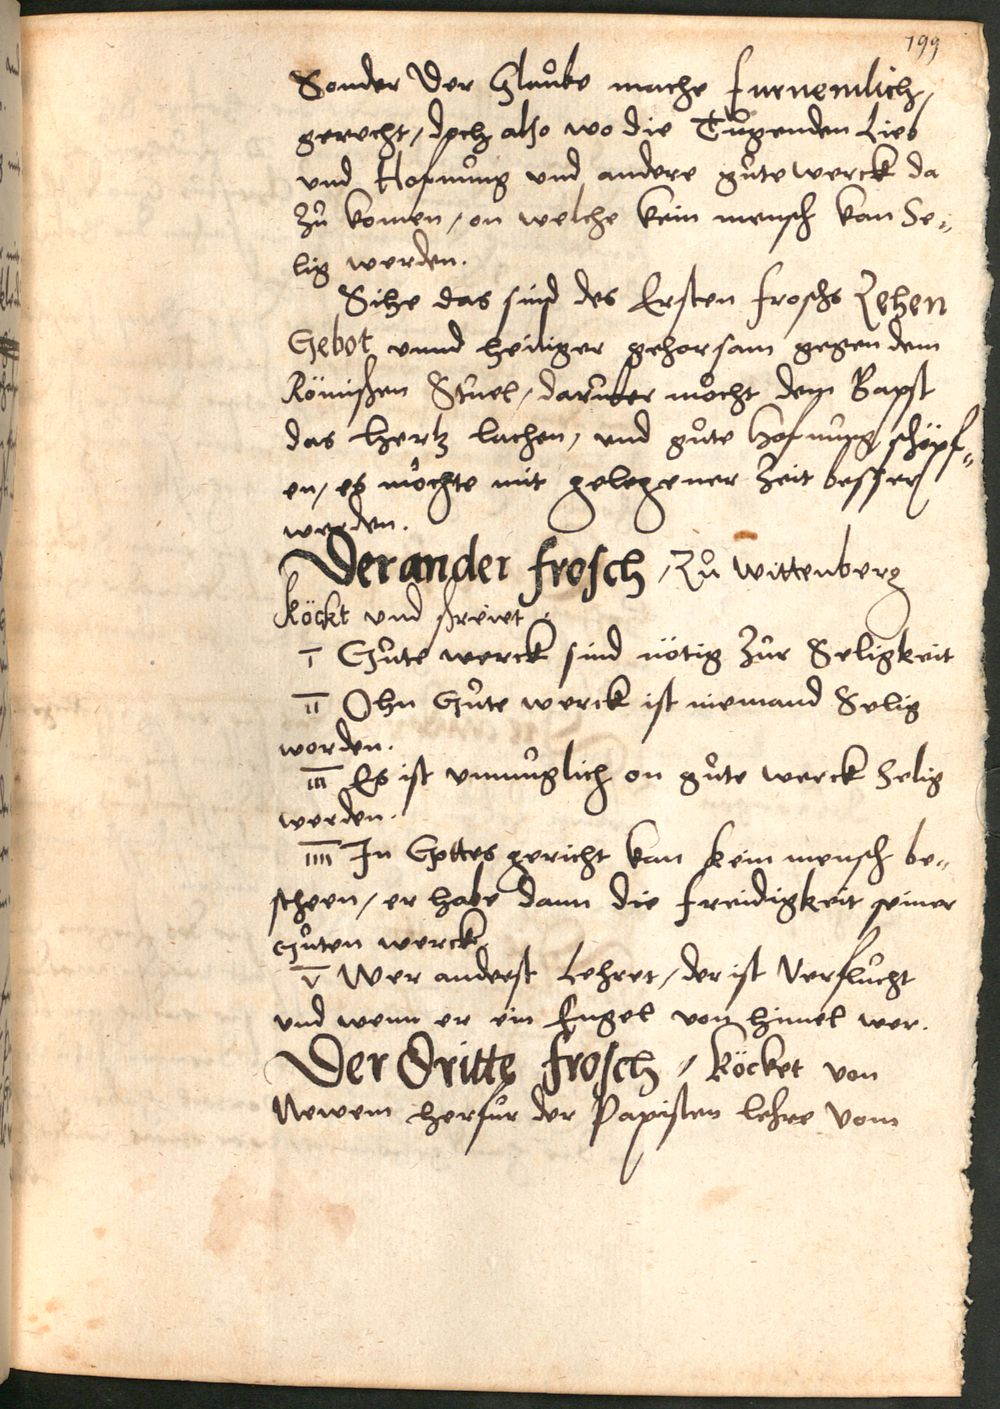 199
Sonder Der Glaube mache furnemlich,
gerecht, doch also wo die Tugenden Lieb
und Hofnung und andere gute werck da
zu komen, on welche kein mensch kan Se-
lig werden.
Sihe das sind des Ersten froschs Zehen
Gebot unnd heiliger gehorsam gegen dem
Römischen Stuel, daruber mocht dem Bapst
das Hertz lachen, und gute Hofnung schöpf-
en, es mochte mit gelegener Zeit besser
werden.
Der ander frosch, Zu Wittenberg
köckt und schreiet.
I Gute werck sind nötig zur Seligkeit
II Ohn Gute werck ist niemand Selig
worden.
III Es ist unmuglich on gute werck Selig
werden.
IIII In Gottes gericht kan kein mensch be-
stheen, er habe dann die freidigkeit seiner
Guten werck.
V Wer anderst Lehret, der ist Verflucht
und wenn er ein Engel von himel wer.
Der Dritte frosch, köcket von
Newem herfur der Papisten lehre Vom